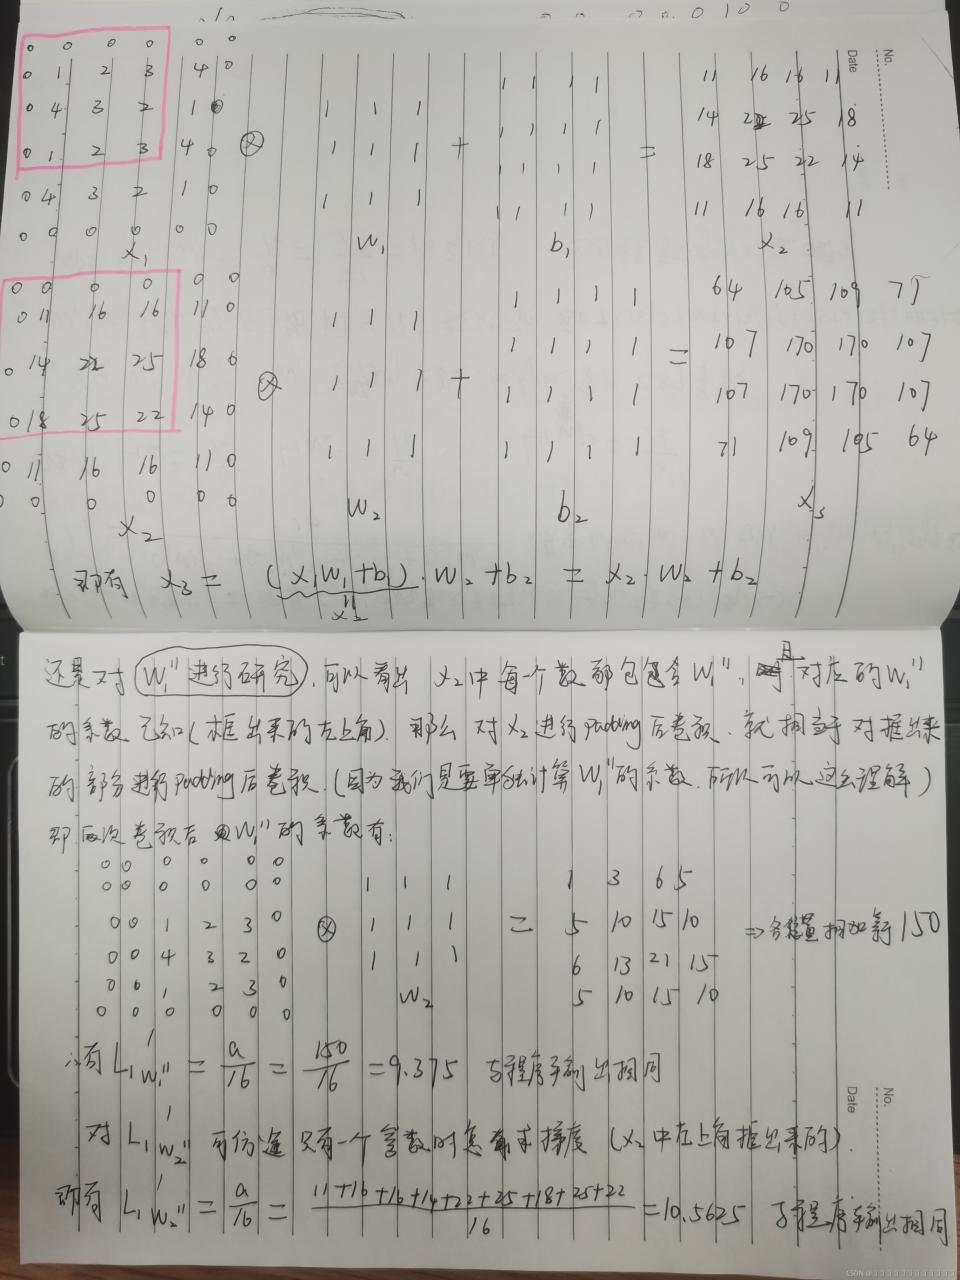 0 0 0 0 0 0
0 1 2 3 4 0
0 4 3 2 1 0 1 1 1 1 1 1 1 11 16 16 11
0 1 2 3 4 0 ⊗ 1 1 1 + 1 1 1 1 = 14 22 25 18
0 4 3 2 1 0 1 1 1 1 1 1 1 18 25 22 14
0 0 0 0 0 0 1 1 1 1 11 16 16 11
X₁ W₁ b₁ X₂
No.
Date
0 0 0 0 0 0
0 11 16 16 11 0 1 1 1 1 1 1 1 64 105 109 71
0 14 22 25 18 0 1 1 1 1 = 107 170 170 107
0 18 25 22 14 0 ⊗ 1 1 1 + 1 1 1 1 107 170 170 107
0 11 16 16 11 0 1 1 1 1 1 1 1 71 109 105 64
0 0 0 0 0 0
X₂ W₂ b₂ X₃
即有 X₃ = (X₁W₁+b₁)·W₂+b₂ = X₂·W₂+b₂
X₂
还是对 W₁'' 进行研究,可以看出 X₂中每一个数都包含W₁'',且对应的W₁''
的系数已知(框出来的左上角).那么对X₂进行padding后卷积,就相当于对框出来
的部分进行padding后卷积.(因为我们只要单独计算W₁''的系数,所以可以这么理解)
即两次卷积后W₁''的系数有:
0 0 0 0 0 0
0 0 0 0 0 0 1 1 1 1 3 6 5
0 0 1 2 3 0 ⊗ 1 1 1 = 5 10 15 10 ⇒ 相加等150
0 0 4 3 2 0 1 1 1 6 13 21 15
0 0 1 2 3 0 W₂ 5 10 15 10
0 0 0 0 0 0
∴有 L₁'W₁'' = a/16 = 150/16 = 9.375 与程序输出相同
对 L₁'W₂'' 可仿造只有一个参数时怎么求梯度 (X₂中左上角框出来的).
即有 L₁'W₂'' = a/16 = 11+16+16+14+22+25+18+25+22/16 = 10.5625 与程序输出相同
No.
Date